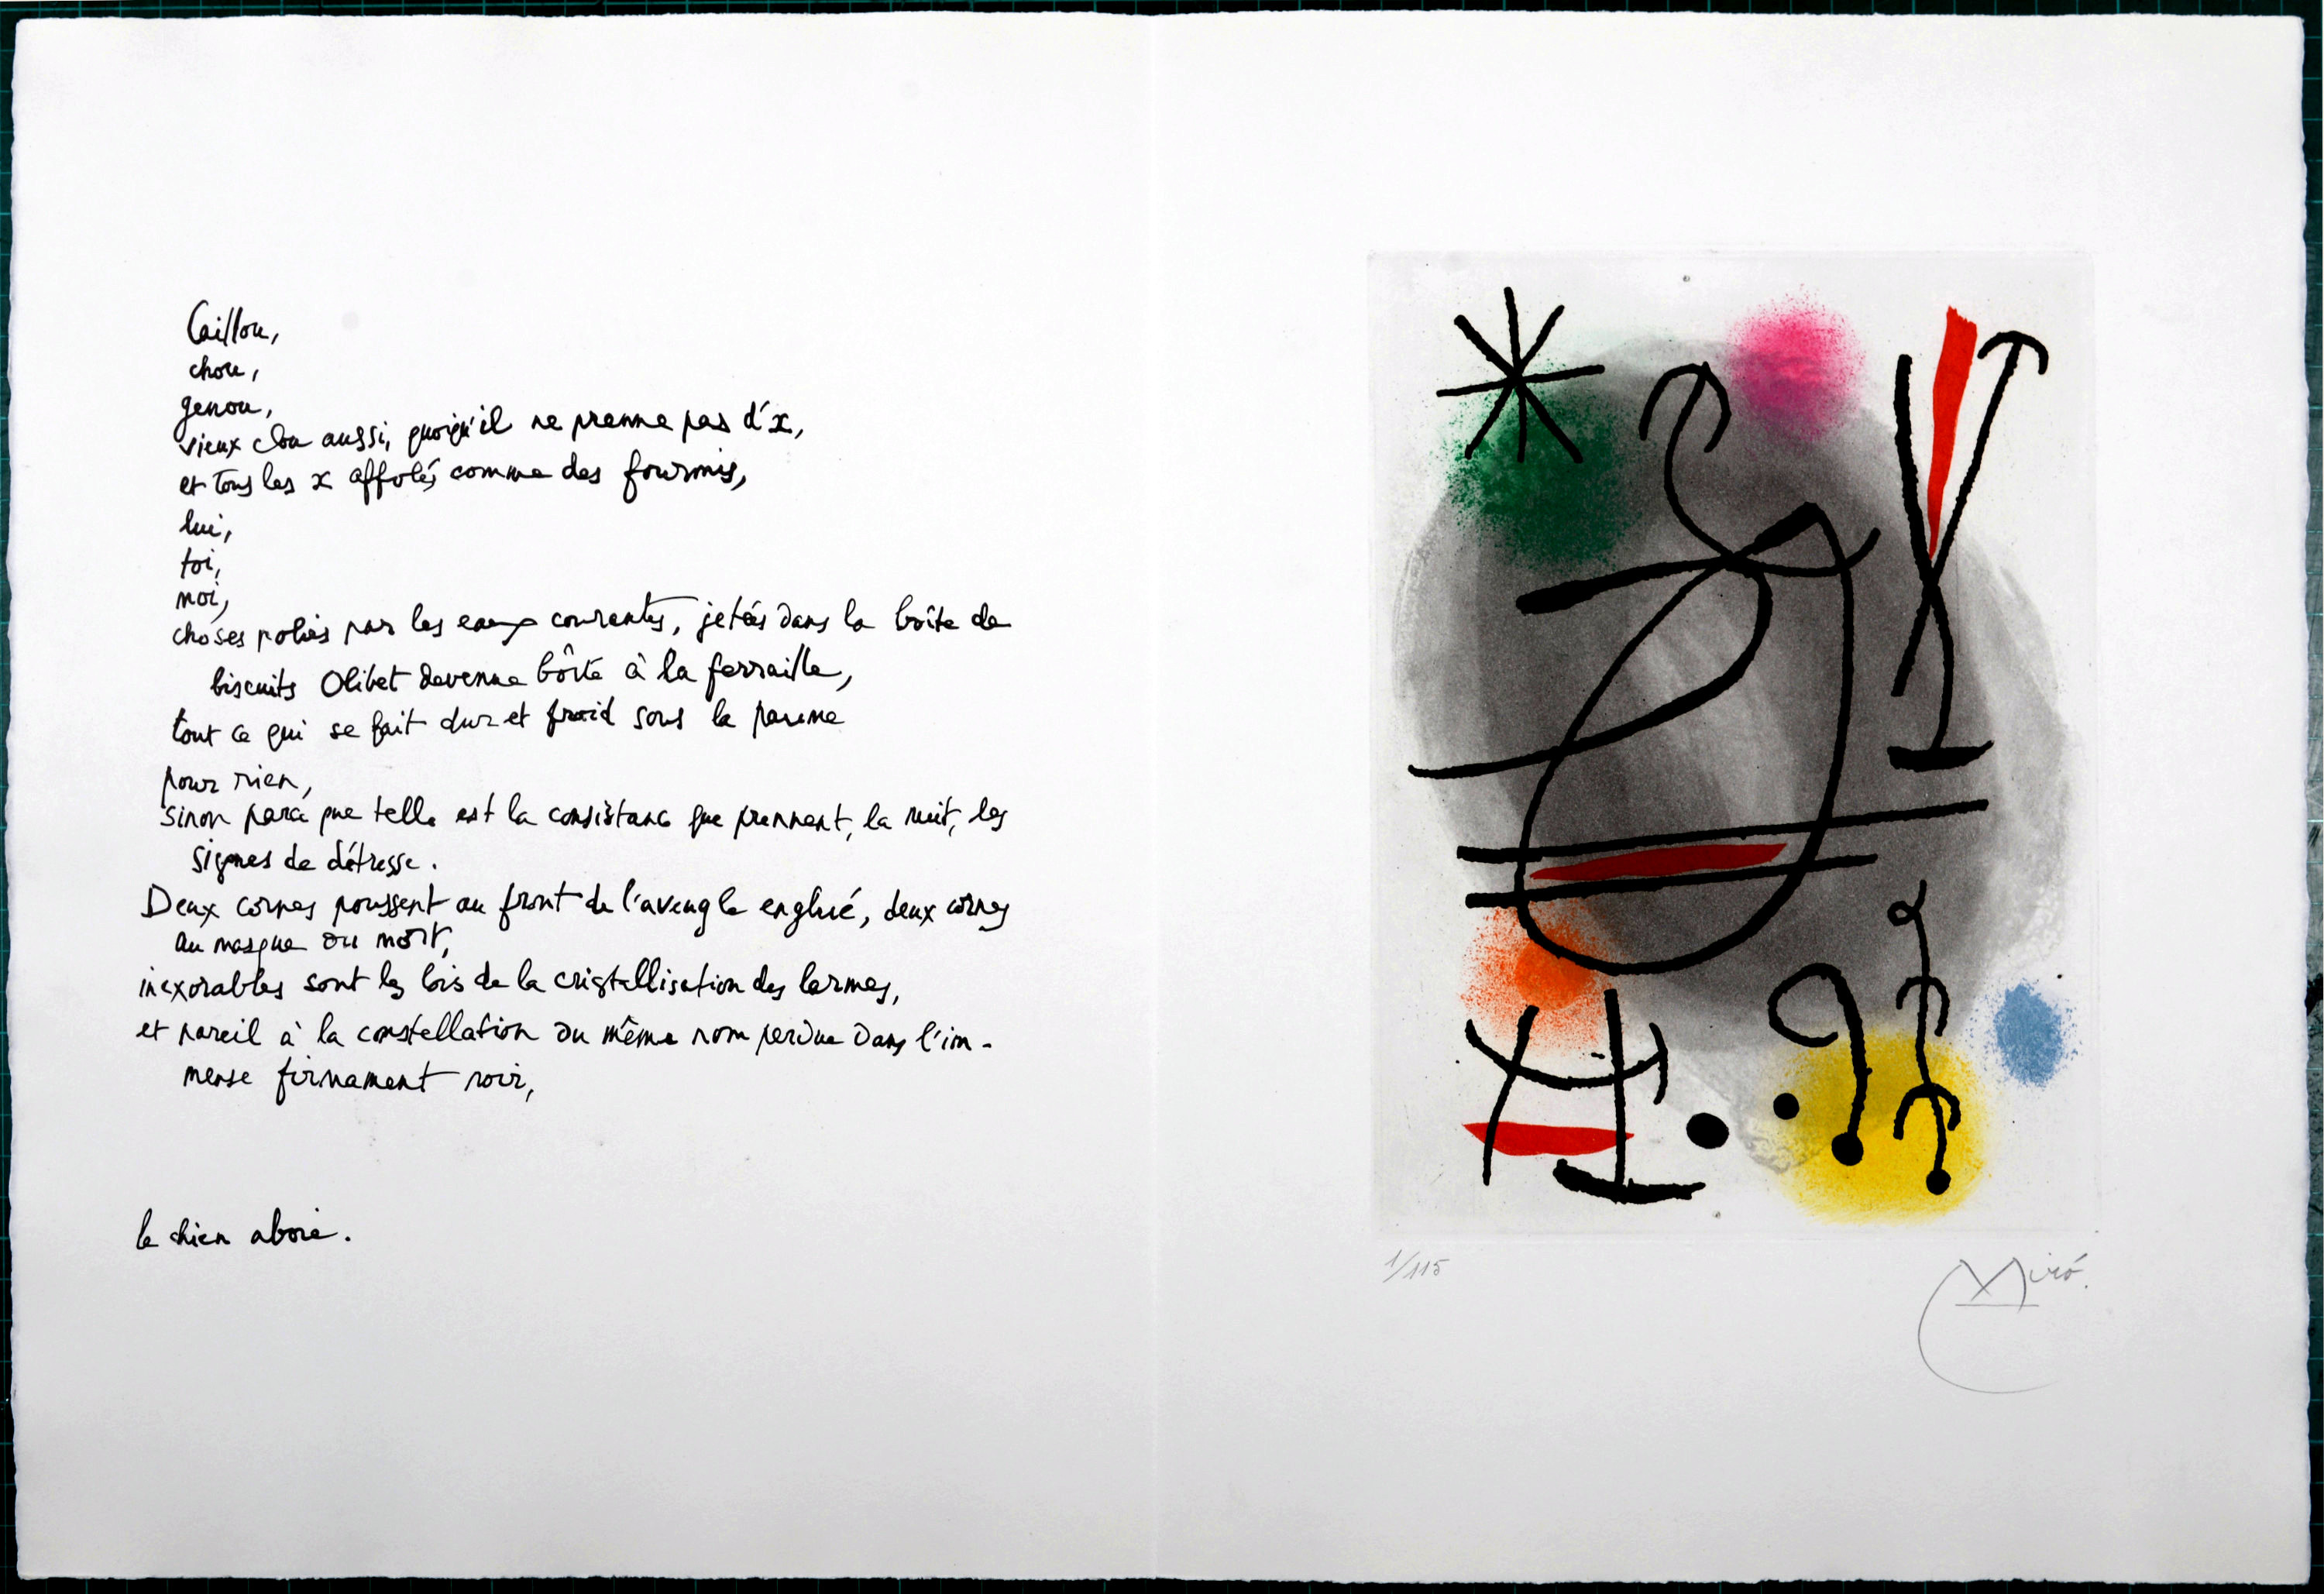 Caillou,
chou,
genou,
vieux clou aussi, quoiqu'il ne prenne pas d'x,
et tous les x affolés comme des fourmis,
lui,
toi,
moi,
choses polies par les eaux courantes, jetées dans la boîte de
biscuits Olibet devenue boîte à la ferraille,
tout ce qui se fait dur et froid sous la paume
pour rien,
sinon parce que telle est la consistance que prennent, la nuit, les
signes de détresse.
Deux cornes poussent au front de l'aveugle englué, deux cornes
au masque du mort,
inexorables sont les lois de la cristallisation des larmes,
et pareil à la constellation du même nom perdue dans l'im-
mense firmament noir,
le chien aboie.
1/115
Miró.